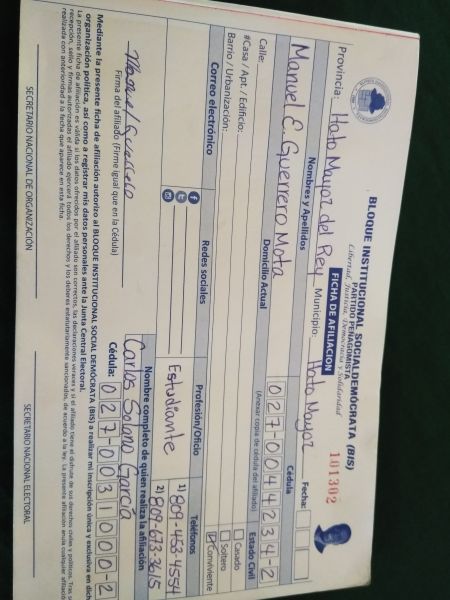 BLOQUE INSTITUCIONAL SOCIALDEMÓCRATA (BIS)
PARTIDO PEÑAGOMISTA
Libertad, Justicia, Democracia y Solidaridad
FICHA DE AFILIACIÓN
101302
Provincia: Hato Mayor del Rey Municipio: Hato Mayor Fecha:
Nombres y Apellidos
Cédula
Manuel E. Guerrero Mota
027-0044234-2
(Anexar copia de cédula del afiliado)
Domicilio Actual
Estado Civil
Calle:
Casado
#Casa / Apt. / Edificio:
Soltero
Barrio / Urbanización:
Conviviente
Correo electrónico
Redes sociales
Profesión/Oficio
Teléfonos
Estudiante
1) 809-453-4554
2) 809-673-3615
Nombre completo de quien realiza la afiliación
Carlos Solano García
Firma del afiliado (Firme igual que en la Cédula)
Cédula: 027-0031000-2
Mediante la presente ficha de afiliación autorizo al BLOQUE INSTITUCIONAL SOCIAL DEMÓCRATA (BIS) a realizar mi inscripción única y exclusiva en dich
organización política, así como a registrar mis datos personales ante la Junta Central Electoral.
La presente ficha de afiliación es válida si los datos ofrecidos por el afiliado son correctos, las declaraciones veraces y si el afiliado tiene el disfrute de sus derechos civiles y políticos. Tras
recepción, sello y firmas autorizadas el afiliado ejercerá todos los derechos y los deberes estatutariamente sancionados, de acuerdo a la ley. La presente afiliación anula cualquier afiliación
realizada con anterioridad a la fecha que aparece en esta ficha.
SECRETARIO NACIONAL DE ORGANIZACIÓN
SECRETARIO NACIONAL ELECTORAL